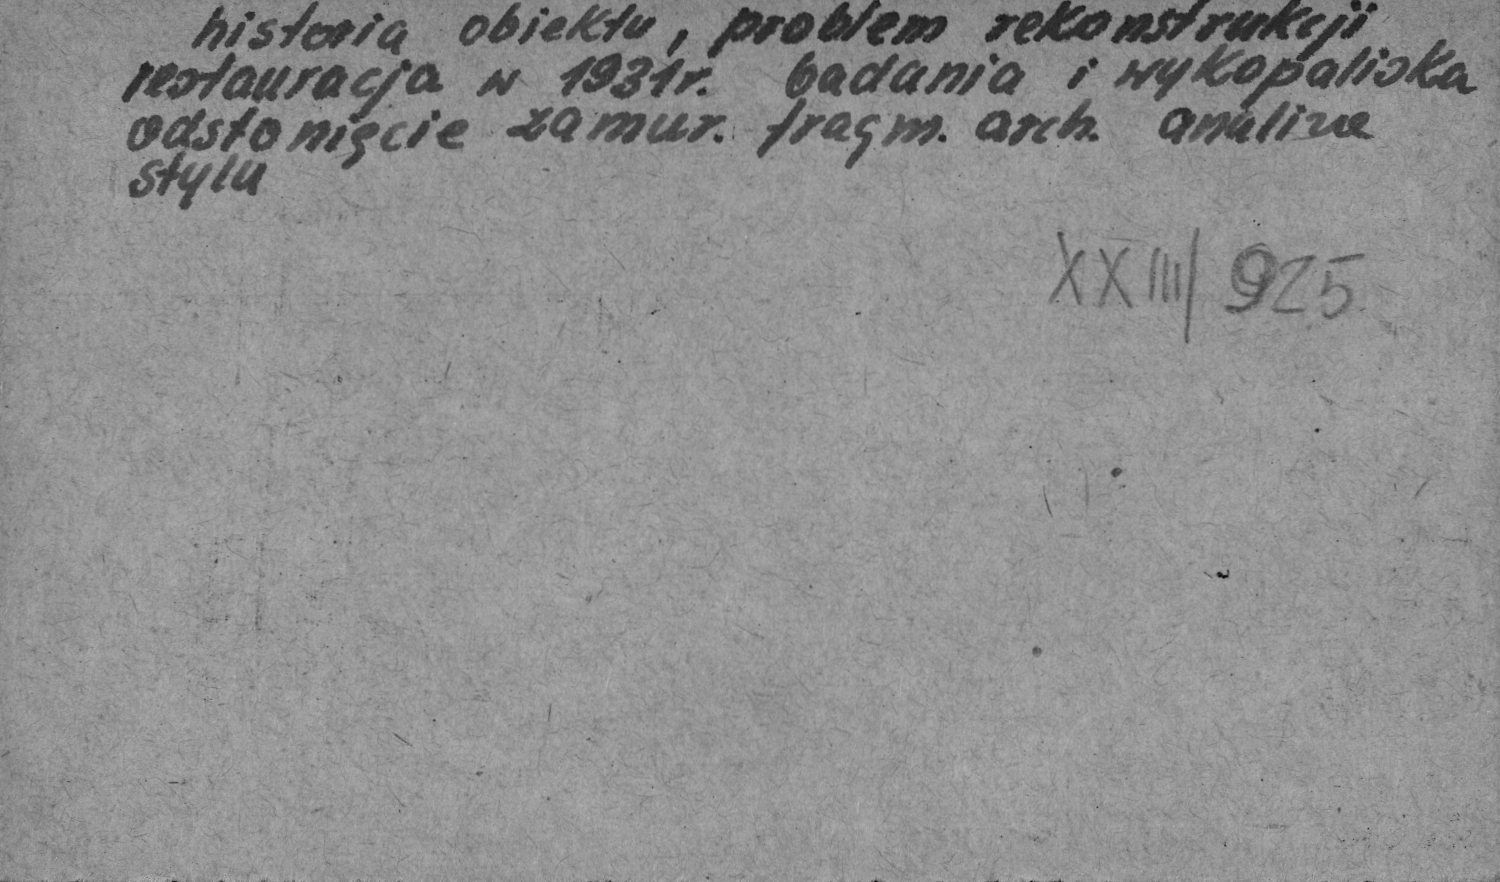 historia obiektu, problem rekonstrukcji
restauracja w 1931r. badania i wykopaliska
odsłonięcie zamur. fragm. arch. analiza
stylu
XXIII/925